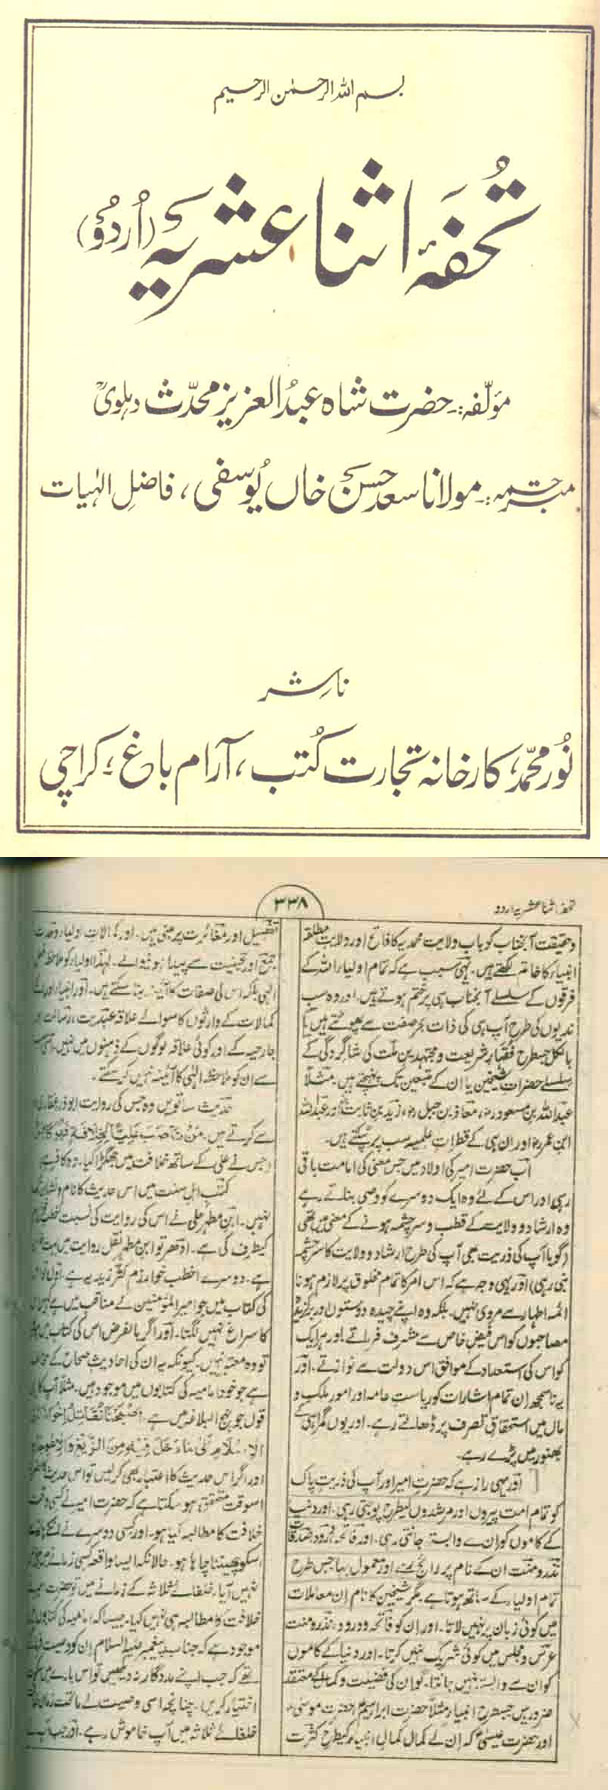 بسم اللہ الرحمٰن الرحیم
تحفۂ اثنا عشریہ (اُردُو)
مؤلّفہ:۔ حضرت شاہ عبدُ العزیز محدّث دہلویؒ
مترجمہ:۔ مولانا سعد حسن خاں یُوسفی، فاضل الہٰیات
ناشر
نُور محمّد، کارخانہ تجارت کُتب، آرام باغ، کراچی
تحفہ اثنا عشریہ اردو
۳۳۸
وحقیقت آنجناب کو باب ولایت محمدیہ کا فاتح اور ولایت مطلقہ
انبیاء کا خاتم لکھتے ہیں۔ یہی سبب ہے کہ تمام اولیاء اللہ کے
فرقوں کے سلسلے آنجناب ہی پر ختم ہوتے ہیں۔ اور وہ سب
ندیوں کی طرح آپ ہی کی ذات بحر صفت سے پھوٹتے ہیں
بالکل جسطرح فقہاء شریعت و مجتہدین ملت کی شاگردی کے
سلسلے حضرات شیخین یا ان کے متبعین تک پہنچتے ہیں۔ مثلاً
عبداللہ بن مسعود، معاذ بن جبل، زید بن ثابت اور عبداللہ
ابن عمر اور ان ہی کے قطرات علمیہ سب پر ٹپکتے ہیں۔
اب حضرت امیر کی اولاد میں جس معنی کی امامت باقی
رہی اور اس کے لئے وہ ایک دوسرے کو وصی بناتے رہے
وہ ارشاد و ولایت کے قطب و سرچشمہ ہونے کے معنی میں تھی
(گویا آپ کی ذریت بھی آپ کی طرح ارشاد و ولایت کا سرچشمہ
بنی رہی) اور یہی وجہ ہے کہ اس امر کا تمام مخلوق پر لازم ہونا
ائمہ اطہار سے مروی نہیں۔ بلکہ وہ اپنے چیدہ دوستوں اور برگزیدہ
مصاحبوں کو اس فیض خاص سے مشرف فرماتے اور ہر ایک
کو اس کی استعداد کے موافق اس دولت سے نوازتے۔ اور
یہ ناسمجھ ان تمام اشارات کو ریاست عامہ اور امور ملک و
مال میں استحقاق تصرف پر ڈھالتے رہے۔ اور یوں گمراہی کے
بھنور میں پڑے رہے۔
اور یہی راز ہے کہ حضرت امیر اور آپ کی ذریت پاک
کو تمام امت پیروں اور مرشدوں کیطرح پوجتی رہی۔ اور دنیا
کے کاموں کو ان سے وابستہ جانتی رہی۔ اور فاتحہ درود صدقات
نذر و منت ان کے نام پر رائج ہے اور معمول بہا جس طرح
تمام اولیاء کے ساتھ ہوتا ہے۔ مگر شیخین کا نام ان معاملات
میں کوئی زبان پر نہیں لاتا۔ اور ان کو فاتحہ و درود، نذر و منت
عرس و مجلس میں کوئی شریک نہیں کرتا۔ اور دنیا کے کاموں
کو ان سے وابستہ نہیں جانتا۔ گو ان کی فضیلت و کمال کے معتقد
ضرور ہیں جسطرح انبیاء مثلاً حضرت ابراہیم حضرت موسیٰ
اور حضرت عیسیٰ کہ ان کے کمال کمال انبیاء کیطرح کثرت
تفصیل اور مغائرت پر مبنی ہیں۔ اور کمالات اولیاء وحدت
جمع اور عینیت سے پیدا ہونیوالے۔ لہٰذا اولیاء کو ملاحظہ فعل
الٰہی بلکہ اس کی صفات کا آئینہ بنا سکتے ہیں۔ اور انبیاء اور
کمالات کے وارثوں کا سوائے علاقہ عبدیت، رسالت اور
جارحیہ کے اور کوئی علاقہ لوگوں کے ذہنوں میں نہیں۔
سے ان کو ملاحظہ الٰہی کا آئینہ نہیں کر سکتے۔
حدیث ساتویں وہ جس کی روایت ابوذر غفاری
سے کرتے ہیں۔ مَنْ نَاصَبَ عَلِيًّا الْخِلَافَةَ فَهُوَ كَافِرٌ
(جس نے علی کے ساتھ خلافت میں جھگڑا کیا۔ وہ کافر ہے
کتب اہل سنت میں اس حدیث کا نام و نشان
نہیں۔ ابن مطہر حلی نے اس کی روایت کی نسبت خطیب خوارزم
کیطرف کی ہے۔ ادھر تو ابن مطہر نقل روایت میں بہت
ہے۔ دوسرے اخطب خوارزم کٹر زیدیہ ہے۔
کی کتاب میں جو امیر المؤمنین کے مناقب میں ہے
کا سراغ نہیں لگتا۔ اور اگر بالفرض اس کی کتاب میں ہو
تو وہ معتبر نہیں۔ کیونکہ یہ ان کی احادیث صحاح کے مخالف
ہے جو خود امامیہ کی کتابوں میں موجود ہیں۔ مثلاً آپ کا
قول جو نہج البلاغہ میں ہے۔ اَصْبَحْنَا نُقَاتِلُ اِخْوَانَنَا
الْاِسْلَامِ عَلٰی مَا دَخَلَ فِیْهِ مِنَ الزَّیْغِ وَالْاِعْوِجَاجِ
اور اگر اس حدیث کا اعتبار بھی کر لیں تو اس حدیث
اسوقت متحقق ہو سکتا ہے کہ حضرت امیر نے کسی وقت
خلافت کا مطالبہ کیا ہو۔ اور کسی دوسرے نے
اسکو چھیننا چاہا ہو۔ حالانکہ ایسا واقعہ کسی زمانے میں
نہیں آیا۔ خلفائے ثلاثہ کے زمانے میں تو حضرت
خلافت کا مطالبہ ہی نہیں کیا۔ جیسا کہ امامیہ کی کتابوں
موجود ہے کہ جناب پیغمبر علیہ السلام ان کو وصیت
تھے کہ جب اپنے مددگار نہ دیکھیں تو اس بارے میں سکوت
اختیار کریں۔ چنانچہ اسی وصیت کے ماتحت
خلفائے ثلاثہ میں آپ خاموش رہے۔ اور جب آپ